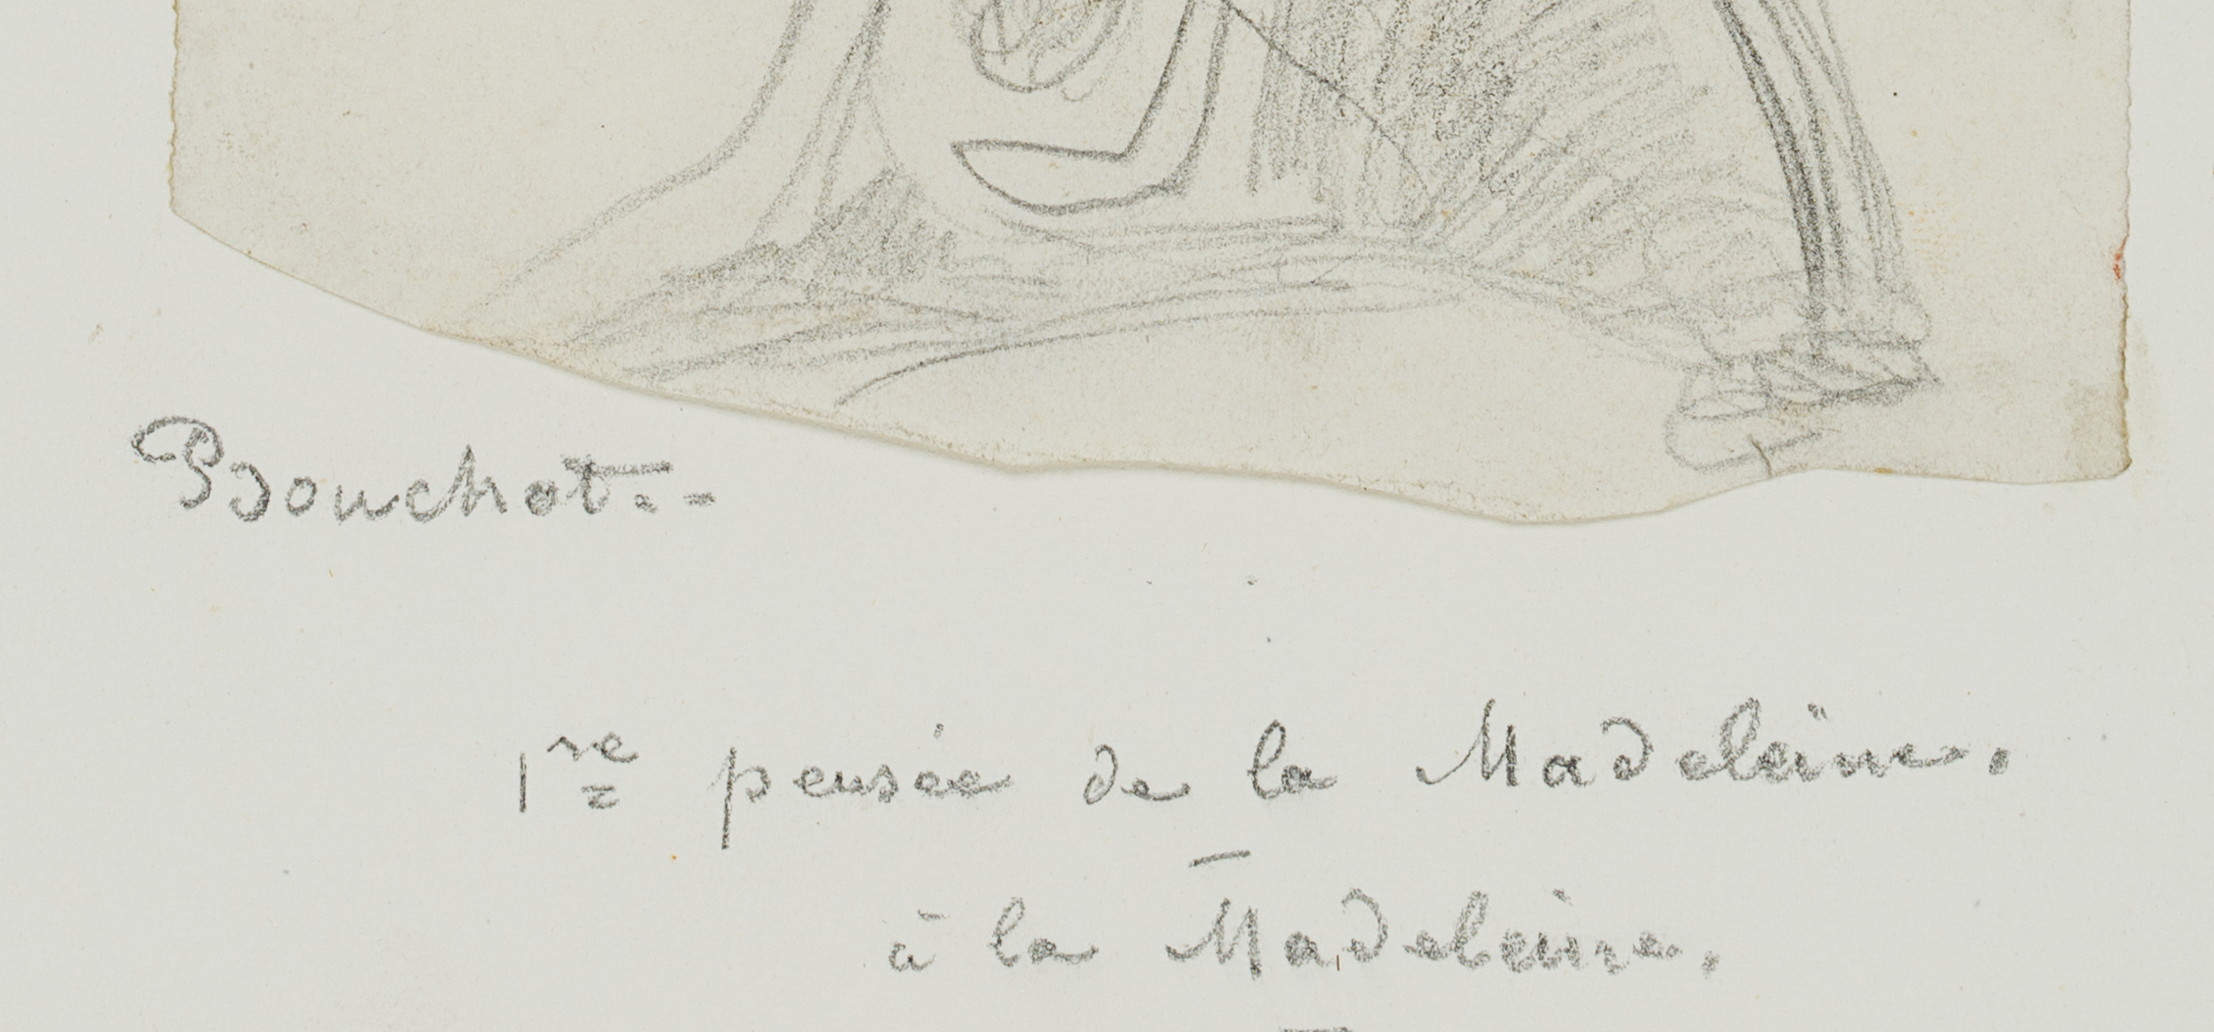 Bouchot.-
1re pensée de la Madeleine.
à la Madeleine.